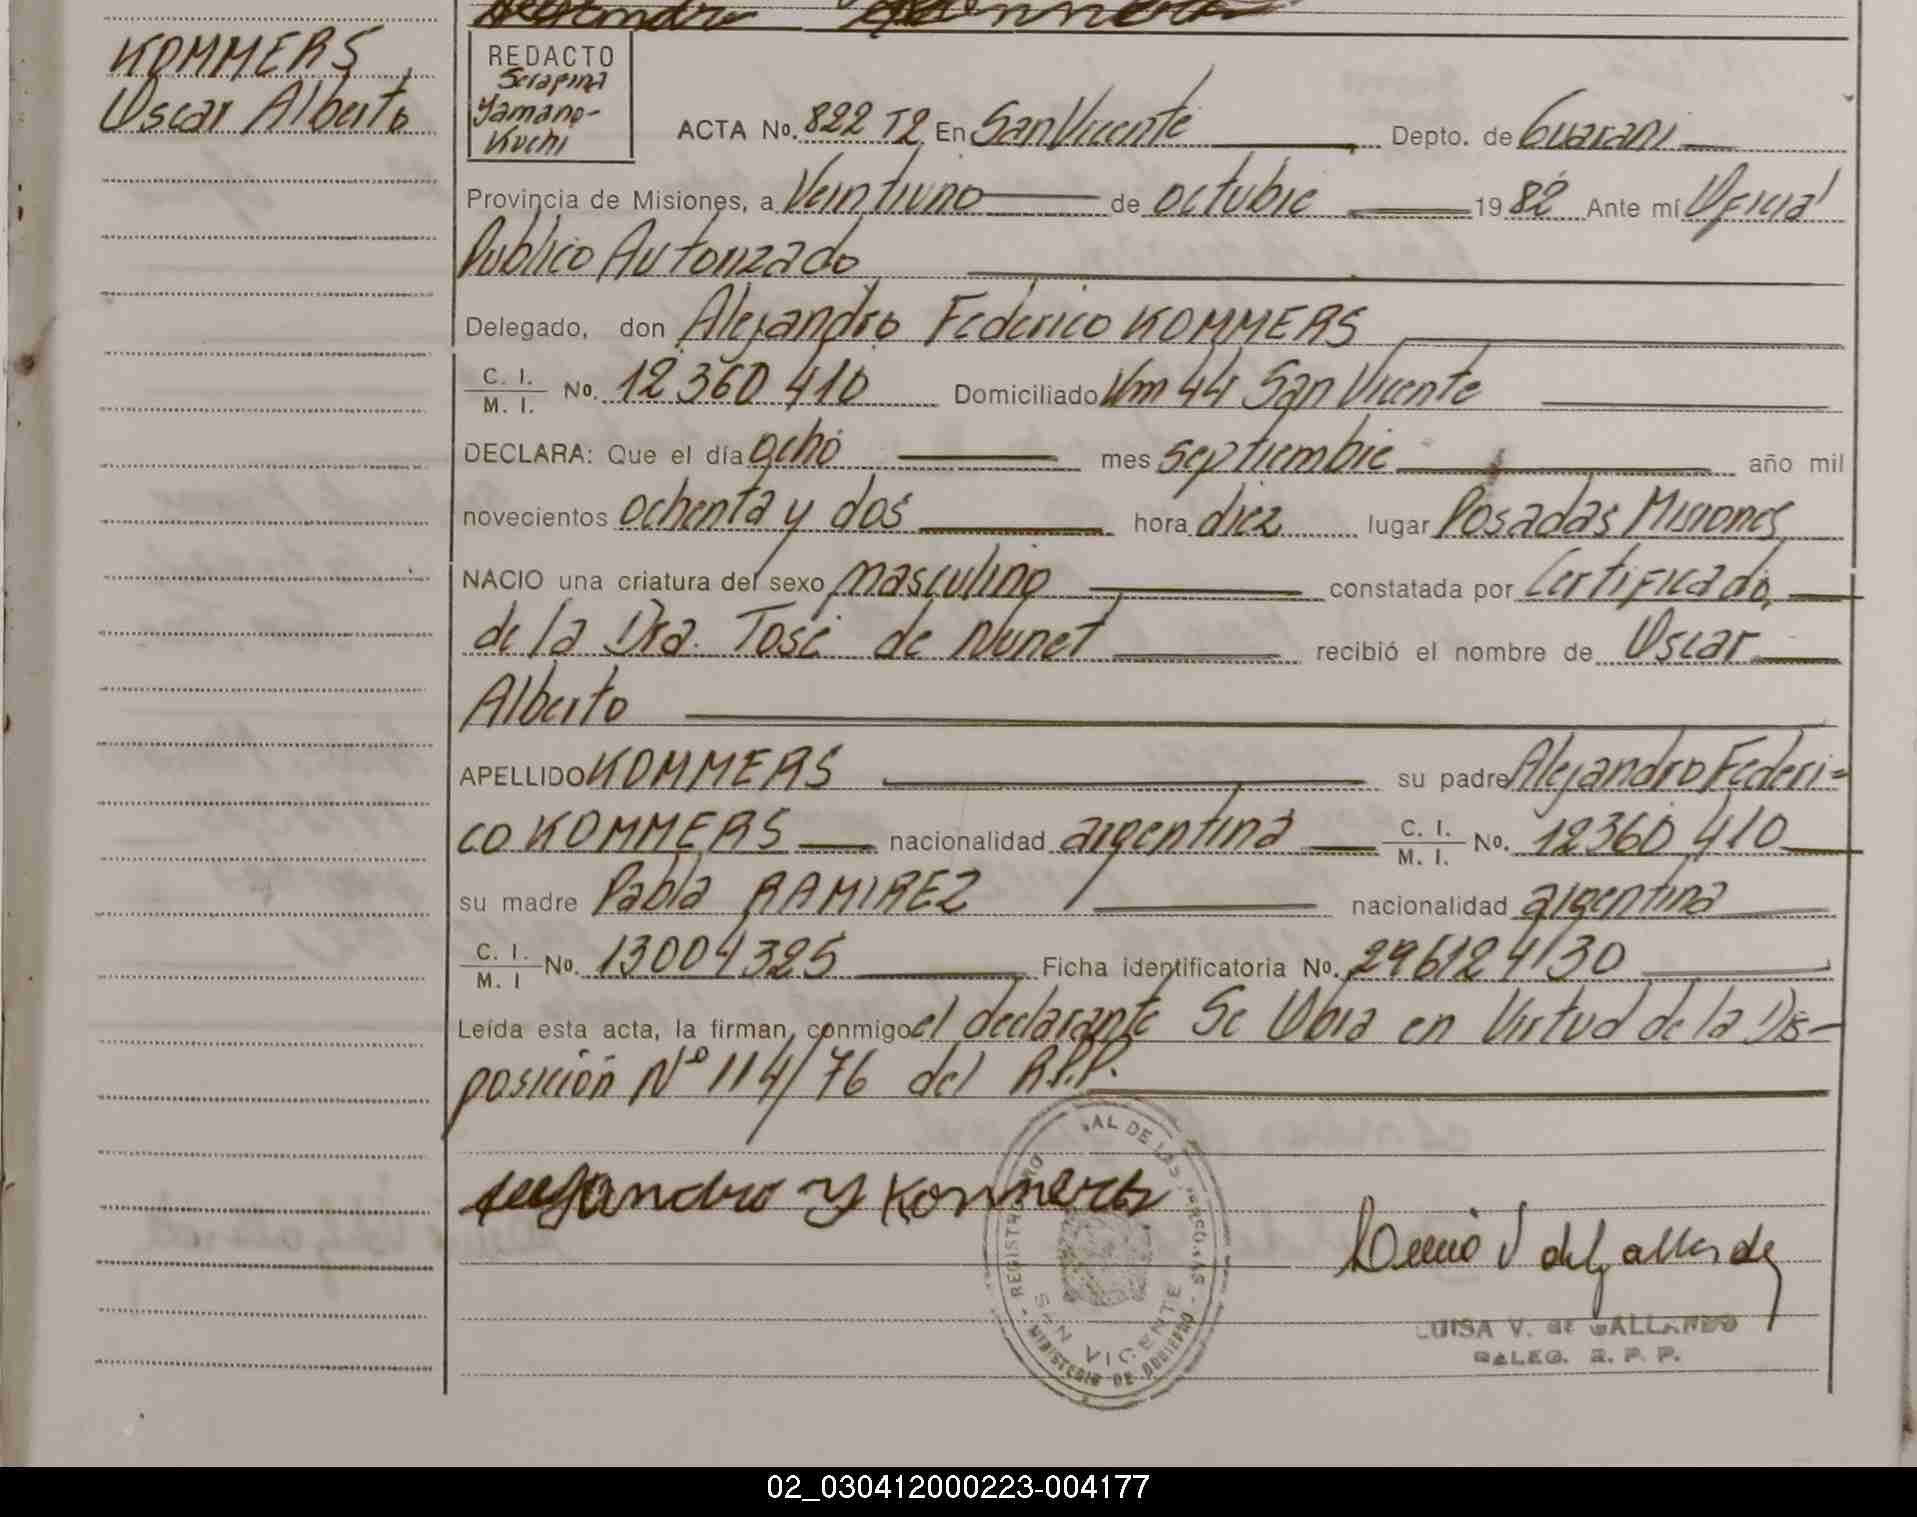 KOMMERS
Oscar Alberto
REDACTO
Serapina
Yamano-
Kuchi
ACTA No. 822 T2 En San Vicente Depto. de Guarani
Provincia de Misiones, a Veintiuno de octubre 1982 Ante mí Oficial
Publico Autorizado
Delegado, don Alejandro Federico KOMMERS
C. I. / M. I. No. 12 360 410 Domiciliado Km 44 San Vicente
DECLARA: Que el día ocho mes septiembre año mil
novecientos ochenta y dos hora diez lugar Posadas Misiones
NACIO una criatura del sexo masculino constatada por Certificado
de la Dra. Tosi de Nunet recibió el nombre de Oscar
Alberto
APELLIDO KOMMERS su padre Alejandro Federi-
co KOMMERS nacionalidad argentina C. I. / M. I. No. 12360 410
su madre Pabla RAMIREZ nacionalidad argentina
C. I. / M. I No. 13004325 Ficha identificatoria No. 296124/30
Leída esta acta, la firman, conmigo el declarante Se Obra en Virtud de la Dis-
posición Nº 114/76 del R.P.P.
REGISTRO AL DE LAS PERSONAS
SAN VICENTE
MINISTERIO DE GOBIERNO
LUISA V. de GALLARDO
DALEG. R. P. P.
02_030412000223-004177